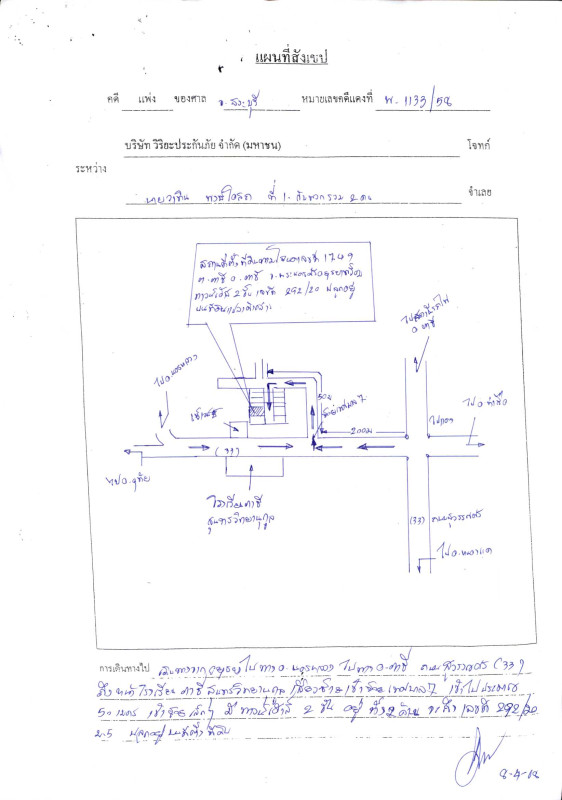 แผนที่สังเขป
คดี แพ่ง ของศาล จ.สระบุรี หมายเลขคดีแดงที่ พ. 1133/58
บริษัท วิริยะประกันภัย จำกัด (มหาชน) โจทก์
ระหว่าง
ที่ 1 กับพวกรวม 2 คน จำเลย
1749
ต.ภาชี อ.ภาชี จ.พระนครศรีอยุธยา
ทาวน์เฮ้าส์ 2 ชั้น เลขที่ 292/20 ปลูกอยู่
ไปสถานีรถไฟ
อ.ภาชี
ไป อ.นครหลวง
50ม
200ม
ไป อ.ท่าเรือ
(33)
ไป อ.อุทัย
โรงเรียนภาชี
สุนทรวิทยานุกูล
(33) ถนนสุวรรณศร
ไป อ.หนองแค
การเดินทางไป ไปทาง อ.นครหลวง ไปทาง อ.ภาชี ถนนสุวรรณศร (33)
ถึงหน้าโรงเรียนภาชีสุนทรวิทยานุกูล เลี้ยวซ้ายเข้าซอยเทศบาล 7 เข้าไปประมาณ
50 เมตร เข้าซอยเล็กๆ มีทาวน์เฮ้าส์ 2 ชั้น อยู่ทั้ง 2 ด้าน จะถึงเลขที่ 292/20